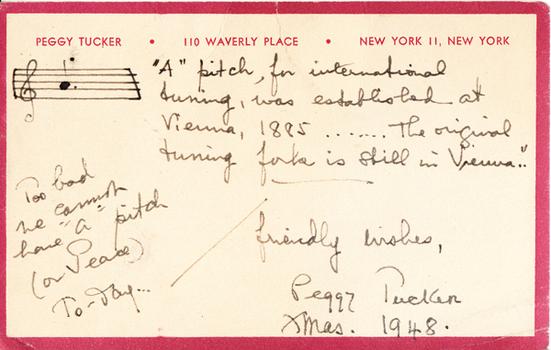 PEGGY TUCKER • 110 WAVERLY PLACE • NEW YORK 11, NEW YORK
"A" pitch, for international
tuning, was established at
Vienna, 1885 ....... The original
tuning forks is still in Vienna."
Too bad
we cannot
have "a" pitch
(or Peace)
To-day...
friendly wishes,
Peggy Tucker
Xmas. 1948.